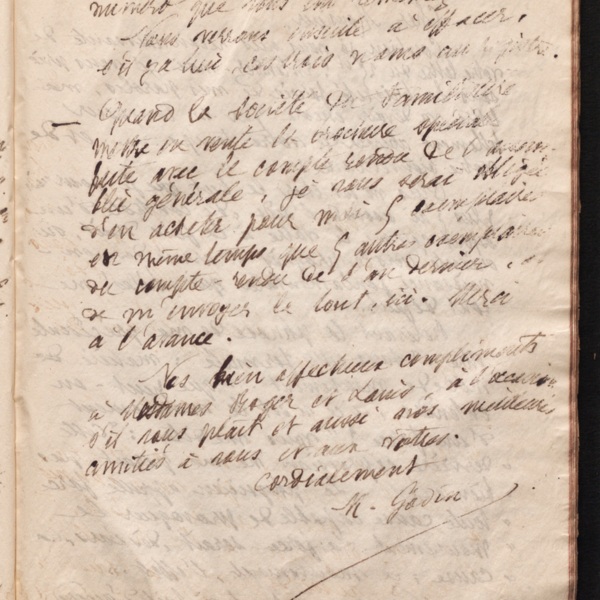 numéro que vous
Nous verrons ensuite à effacer,
s'il y a lieu, ces trois noms au registre.
— Quand la Société du Familistère
mettra en vente la brochure spéciale
faite avec le compte rendu de l'assem-
blée générale, je vous serai obligé
d'en acheter pour moi 5 exemplaires
en même temps que 5 autres exemplaires
du compte-rendu de l'an dernier,
de m'envoyer le tout ici. Merci
à l'avance.
Nos bien affectueux compliments
à Mesdames Roger et Louis, à l'occasion
s'il vous plaît et aussi nos meilleures
amitiés à vous et aux vôtres.
Cordialement
M. Godin